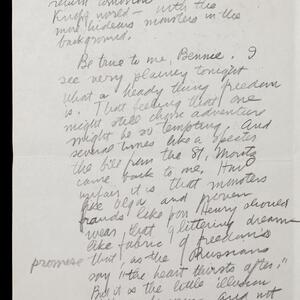 return tomorrow
world - with the
more hideous monsters in the
background.
Be true to me, Bennie. I
see very plainly tonight
what a heady thing freedom
is. That feeling that one
might still chase adventure
might be so tempting. And
several times like a specter
the bill from the St. Moritz
came back to me. How
unfair it is that monsters
like Olga and proven
frauds like Jon Henry should
wear that glittering dreams
like fabric of freedom's
promise that as the Russians
say "the heart thirsts after."
But it is the little illusion
and not